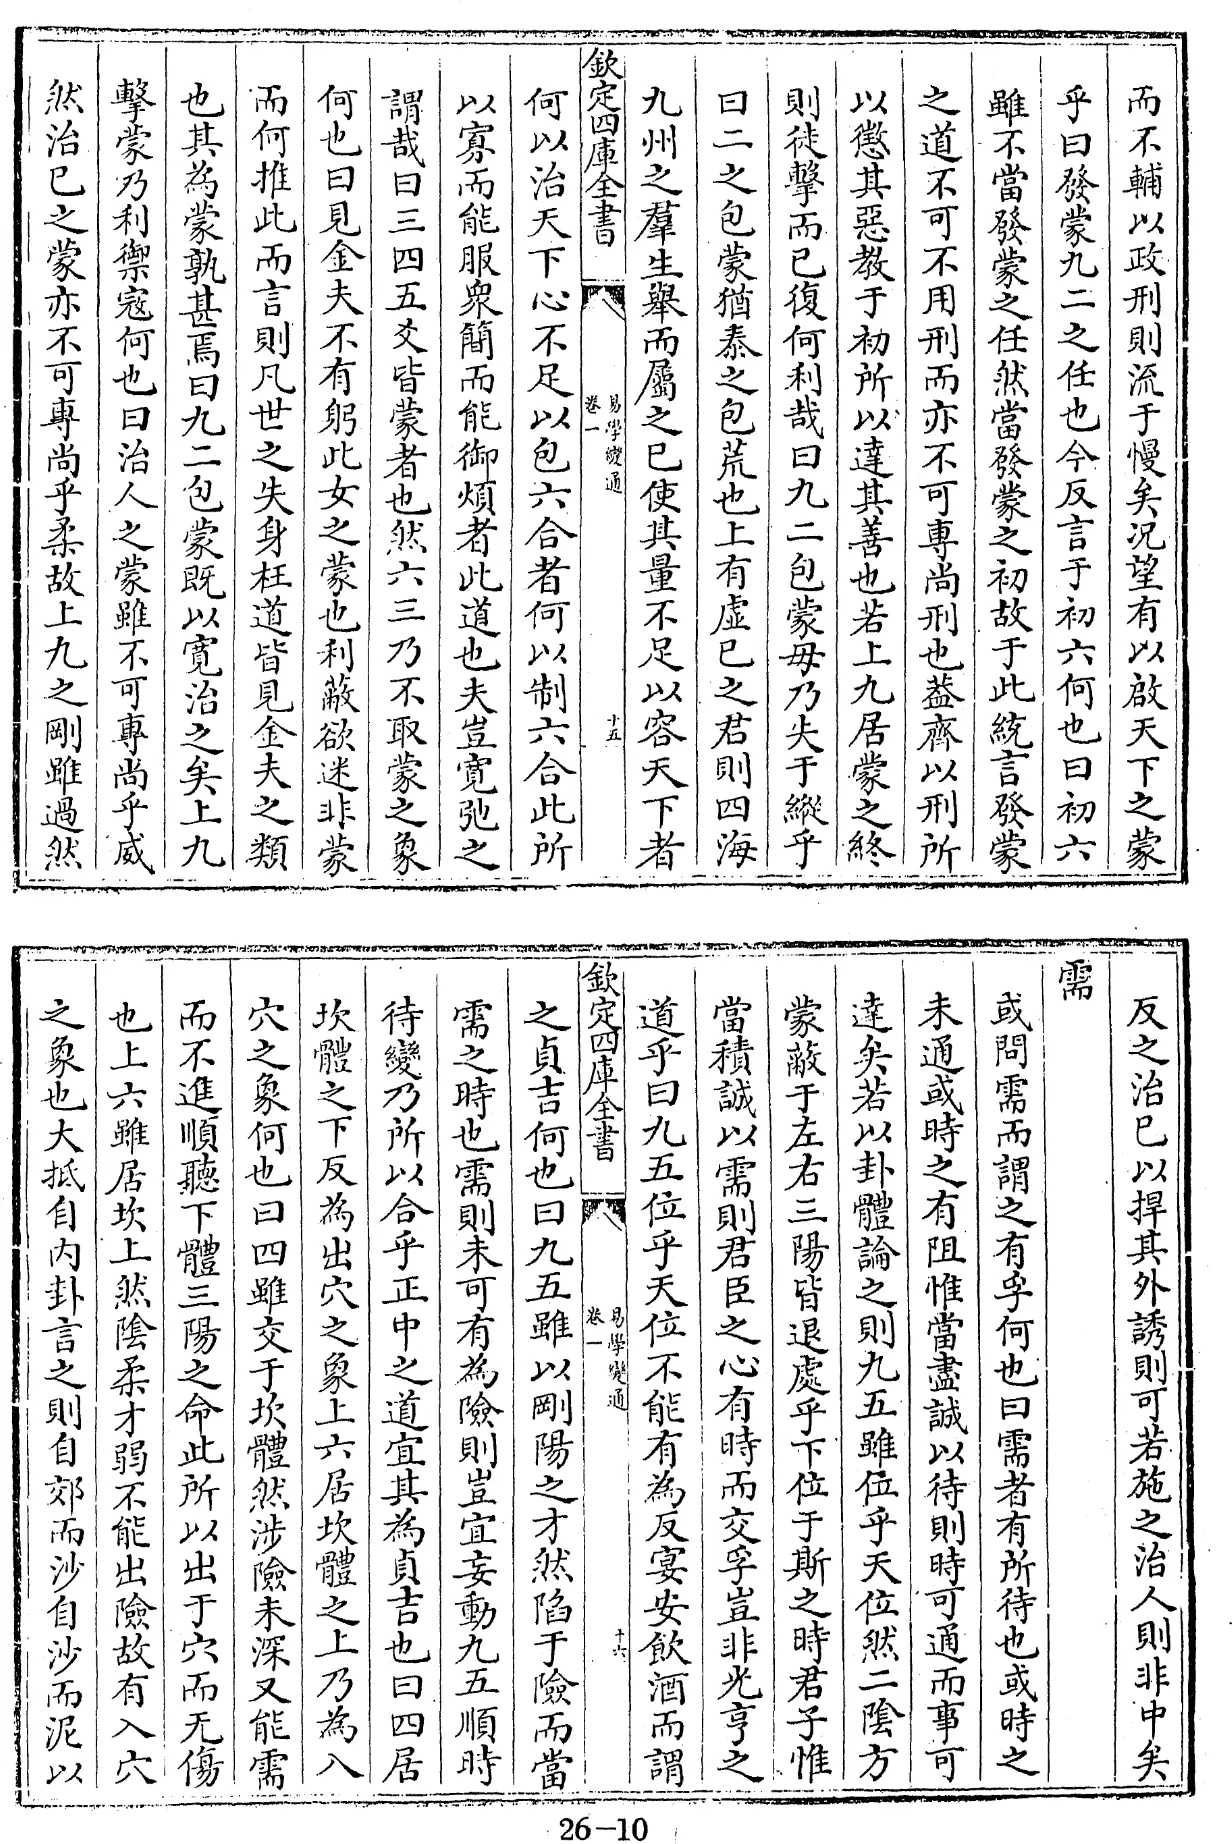 而不輔以政刑則流于慢矣況望有以啟天下之蒙
乎曰發蒙九二之任也今反言于初六何也曰初六
雖不當發蒙之任然當發蒙之初故于此統言發蒙
之道不可不用刑而亦不可專尚刑也葢齊以刑所
以懲其惡教于初所以達其善也若上九居蒙之終
則徒擊而已復何利哉曰九二包蒙毋乃失于縱乎
曰二之包蒙猶泰之包荒也上有虛已之君則四海
九州之羣生舉而屬之已使其量不足以容天下者
欽定四庫全書
易學變通
卷一
十五
何以治天下心不足以包六合者何以制六合此所
以寡而能服衆簡而能御煩者此道也夫豈寛弛之
謂哉曰三四五爻皆蒙者也然六三乃不取蒙之象
何也曰見金夫不有躬此女之蒙也利蔽欲迷非蒙
而何推此而言則凡世之失身枉道皆見金夫之類
也其為蒙孰甚焉曰九二包蒙既以寛治之矣上九
擊蒙乃利禦寇何也曰治人之蒙雖不可專尚乎威
然治已之蒙亦不可專尚乎柔故上九之剛雖過然
反之治已以捍其外誘則可若施之治人則非中矣
需
或問需而謂之有孚何也曰需者有所待也或時之
未通或時之有阻惟當盡誠以待則時可通而事可
達矣若以卦體論之則九五雖位乎天位然二陰方
蒙蔽于左右三陽皆退處乎下位于斯之時君子惟
當積誠以需則君臣之心有時而交孚豈非光亨之
道乎曰九五位乎天位不能有為反宴安飲酒而謂
欽定四庫全書
易學變通
卷一
十六
之貞吉何也曰九五雖以剛陽之才然陷于險而當
需之時也需則未可有為險則豈宜妄動九五順時
待變乃所以合乎正中之道宜其為貞吉也曰四居
坎體之下反為出穴之象上六居坎體之上乃為入
穴之象何也曰四雖交于坎體然涉險未深又能需
而不進順聽下體三陽之命此所以出于穴而无傷
也上六雖居坎上然陰柔才弱不能出險故有入穴
之象也大抵自内卦言之則自郊而沙自沙而泥以
26-10